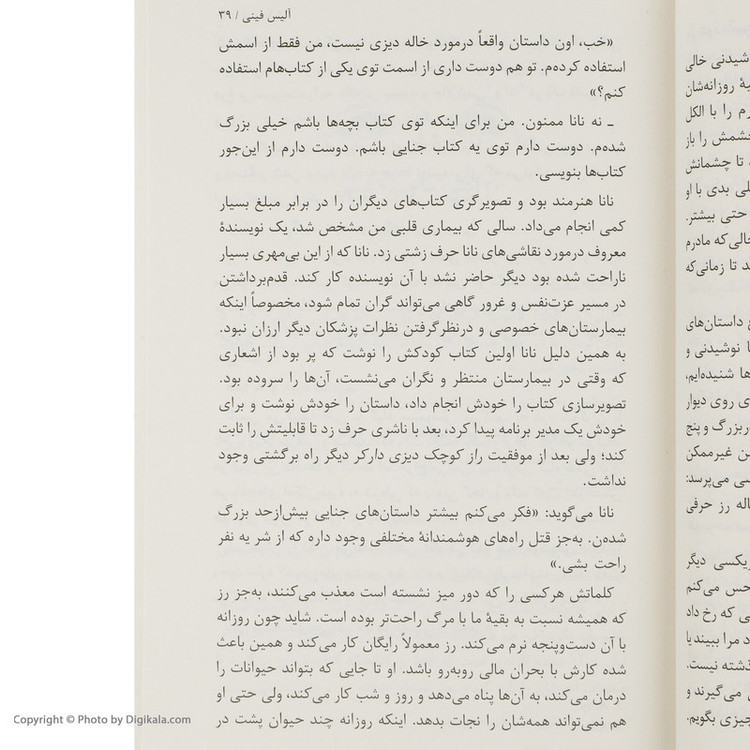 آلیس فینی / ۳۹
«خب، اون داستان واقعاً درمورد خاله دیزی نیست، من فقط از اسمش
استفاده کرده‌م. تو هم دوست داری از اسمت توی یکی از کتاب‌هام استفاده
کنم؟»
ـ نه نانا ممنون. من برای اینکه توی کتاب بچه‌ها باشم خیلی بزرگ
شده‌م. دوست دارم توی یه کتاب جنایی باشم. دوست دارم از این‌جور
کتاب‌ها بنویسی.
نانا هنرمند بود و تصویرگری کتاب‌های دیگران را در برابر مبلغ بسیار
کمی انجام می‌داد. سالی که بیماری قلبی من مشخص شد، یک نویسندهٔ
معروف درمورد نقاشی‌های نانا حرف زشتی زد. نانا که از این بی‌مهری بسیار
ناراحت شده بود دیگر حاضر نشد با آن نویسنده کار کند. قدم‌برداشتن
در مسیر عزت‌نفس و غرور گاهی می‌تواند گران تمام شود، مخصوصاً اینکه
بیمارستان‌های خصوصی و درنظرگرفتن نظرات پزشکان دیگر ارزان نبود.
به همین دلیل نانا اولین کتاب کودکش را نوشت که پر بود از اشعاری
که وقتی در بیمارستان منتظر و نگران می‌نشست، آن‌ها را سروده بود.
تصویرسازی کتاب را خودش انجام داد، داستان را خودش نوشت و برای
خودش یک مدیر برنامه پیدا کرد، بعد با ناشری حرف زد تا قابلیتش را ثابت
کند؛ ولی بعد از موفقیت راز کوچک دیزی دارکر دیگر راه برگشتی وجود
نداشت.
نانا می‌گوید: «فکر می‌کنم بیشتر داستان‌های جنایی بیش‌ازحد بزرگ
شده‌ن. به‌جز قتل راه‌های هوشمندانهٔ مختلفی وجود داره که از شر یه نفر
راحت بشی.»
کلماتش هرکسی را که دور میز نشسته است معذب می‌کنند، به‌جز رز
که همیشه نسبت به بقیهٔ ما با مرگ راحت‌تر بوده است. شاید چون روزانه
با آن دست‌وپنجه نرم می‌کند. رز معمولاً رایگان کار می‌کند و همین باعث
شده کارش با بحران مالی روبه‌رو باشد. او تا جایی که بتواند حیوانات را
درمان می‌کند، به آن‌ها پناه می‌دهد و روز و شب کار می‌کند، ولی حتی او
هم نمی‌تواند همه‌شان را نجات بدهد. اینکه روزانه چند حیوان پشت در
Copyright © Photo by Digikala.com